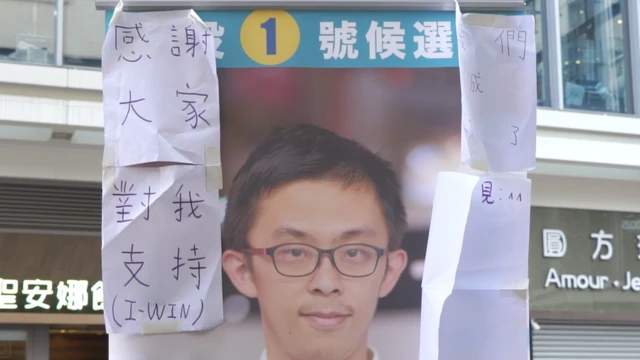 1 號候選
感謝
大家
對我
支持
(I-WIN)
們
成
了
見:^^
聖安娜
圓方
Amour·Je